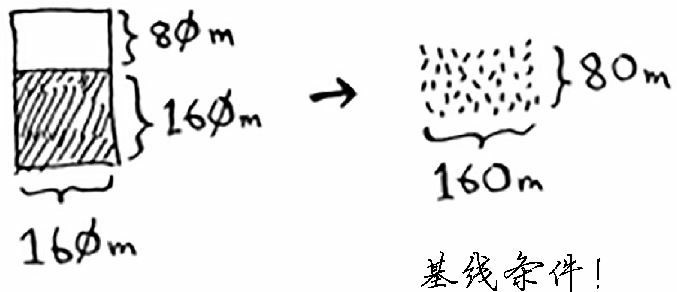 8Øm
16Øm
16Øm
→
80m
160m
基线条件！